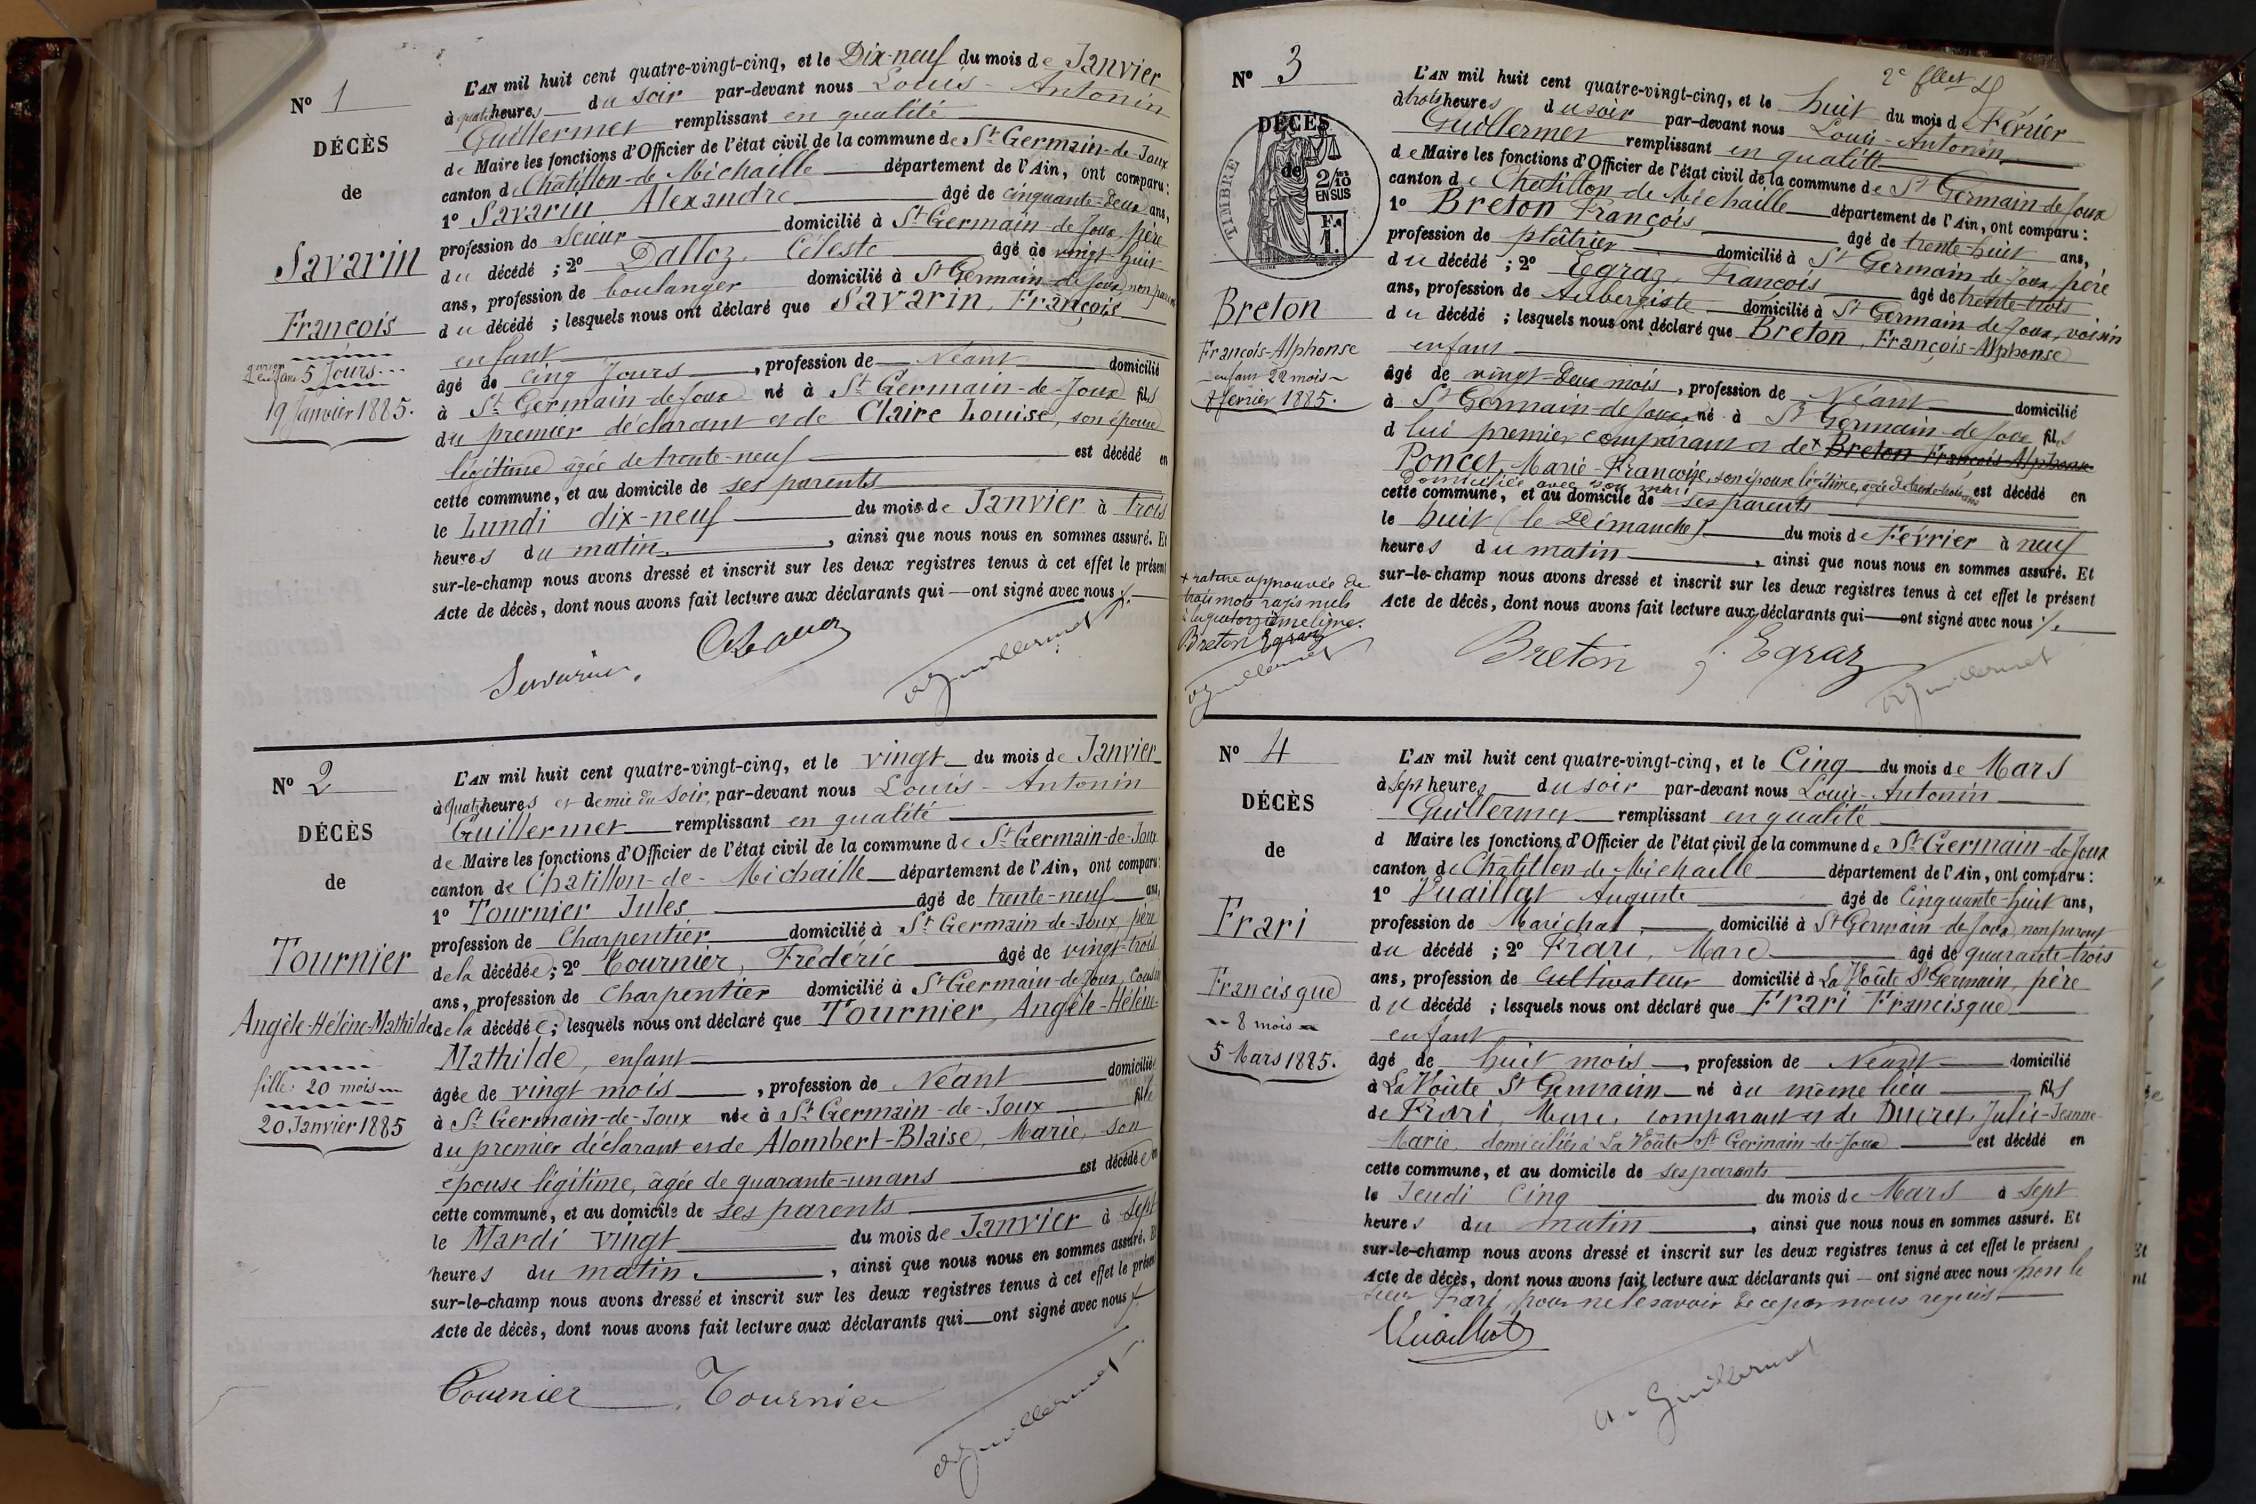 N° 1
DÉCÈS
de
Savarin
François
5 Jours
19 Janvier 1885.
L'AN mil huit cent quatre-vingt-cinq, et le Dix-neuf du mois de Janvier
à heures du soir par-devant nous Louis-Antonin
Guillermet remplissant en qualité
de Maire les fonctions d'Officier de l'état civil de la commune de St Germain-de-Joux
canton de Châtillon-de-Michaille département de l'Ain, ont comparu :
1° Savarin Alexandre âgé de cinquante-deux ans,
profession de Scieur domicilié à St Germain de Joux, père
du décédé ; 2° Dalloz, Céleste âgé de vingt-huit
ans, profession de boulanger domicilié à St Germain-de-Joux, non parent
du décédé ; lesquels nous ont déclaré que Savarin, François
enfant
âgé de cinq jours, profession de Néant domicilié
à St Germain-de-Joux né à St Germain-de-Joux fils
du premier déclarant et de Claire Louise, son épouse
légitime âgée de trente-neuf est décédé en
cette commune, et au domicile de ses parents
le Lundi dix-neuf du mois de Janvier à trois
heures du matin, ainsi que nous nous en sommes assuré. Et
sur-le-champ nous avons dressé et inscrit sur les deux registres tenus à cet effet le présent
Acte de décès, dont nous avons fait lecture aux déclarants qui — ont signé avec nous
Savarin
Guillermet
N° 2
DÉCÈS
de
Tournier
Angèle-Hélène-Mathilde
fille 20 mois
20 Janvier 1885
L'AN mil huit cent quatre-vingt-cinq, et le vingt du mois de Janvier
à quatre heures et demie du soir, par-devant nous Louis-Antonin
Guillermet remplissant en qualité
de Maire les fonctions d'Officier de l'état civil de la commune de St Germain-de-Joux
canton de Châtillon-de-Michaille département de l'Ain, ont comparu :
1° Tournier Jules âgé de trente-neuf ans,
profession de Charpentier domicilié à St Germain-de-Joux, père
de la décédée ; 2° Tournier, Frédéric âgé de vingt-trois
ans, profession de Charpentier domicilié à St Germain-de-Joux, Cousin
de la décédée ; lesquels nous ont déclaré que Tournier, Angèle-Hélène
Mathilde, enfant
âgée de vingt mois, profession de Néant domiciliée
à St Germain-de-Joux née à St Germain-de-Joux fille
du premier déclarant et de Alombert-Blaise, Marie, son
épouse légitime, âgée de quarante-un ans est décédée en
cette commune, et au domicile de ses parents
le Mardi vingt du mois de Janvier à sept
heures du matin, ainsi que nous nous en sommes assuré. Et
sur-le-champ nous avons dressé et inscrit sur les deux registres tenus à cet effet le présent
Acte de décès, dont nous avons fait lecture aux déclarants qui — ont signé avec nous
Tournier Tournier
Guillermet
2e
N° 3
DÉCÈS
de
TIMBRE
2/10
EN SUS
F.
1.
Breton
François-Alphonse
enfant 22 mois
8 février 1885.
L'AN mil huit cent quatre-vingt-cinq, et le huit du mois de Février
à trois heures du soir par-devant nous Louis-Antonin
Guillermet remplissant en qualité
de Maire les fonctions d'Officier de l'état civil de la commune de St Germain-de-Joux
canton de Châtillon-de-Michaille département de l'Ain, ont comparu :
1° Breton François âgé de trente-huit ans,
profession de plâtrier domicilié à St Germain de Joux, père
du décédé ; 2° Egraz, François âgé de trente-trois
ans, profession de Aubergiste domicilié à St Germain-de-Joux, voisin
du décédé ; lesquels nous ont déclaré que Breton, François-Alphonse
enfant
âgé de vingt-deux mois, profession de Néant domicilié
à St Germain-de-Joux, né à St Germain-de-Joux fils
d lui premier comparant et de + Breton François-Alphonse
Poncet, Marie-Françoise, son épouse légitime, âgée de trente-trois ans est décédé en
domiciliée avec son mari
cette commune, et au domicile de ses parents
le huit (le Dimanche) du mois de Février à neuf
heures du matin, ainsi que nous nous en sommes assuré. Et
sur-le-champ nous avons dressé et inscrit sur les deux registres tenus à cet effet le présent
Acte de décès, dont nous avons fait lecture aux déclarants qui — ont signé avec nous
+ rature approuvée de
trois mots rayés nuls
à la quatorzième ligne.
Breton Egraz
Guillermet
Breton F. Egraz
Guillermet
N° 4
DÉCÈS
de
Frari
Francisque
8 mois
5 Mars 1885.
L'AN mil huit cent quatre-vingt-cinq, et le Cinq du mois de Mars
à sept heures du soir par-devant nous Louis-Antonin
Guillermet remplissant en qualité
d Maire les fonctions d'Officier de l'état civil de la commune de St Germain-de-Joux
canton de Châtillon-de-Michaille département de l'Ain, ont comparu :
1° Vuaillat Auguste âgé de Cinquante-huit ans,
profession de Maréchal domicilié à St Germain de Joux, non parent
du décédé ; 2° Frari, Marc âgé de quarante-trois
ans, profession de Cultivateur domicilié à La Voûte St Germain, père
du décédé ; lesquels nous ont déclaré que Frari Francisque
enfant
âgé de huit mois, profession de Néant domicilié
à La Voûte St Germain né au même lieu fils
de Frari, Marc, comparant et de Ducret, Julie-Jeanne-
Marie, domiciliés à La Voûte St Germain-de-Joux est décédé en
cette commune, et au domicile de ses parents
le Jeudi Cinq du mois de Mars à sept
heures du matin, ainsi que nous nous en sommes assuré. Et
sur-le-champ nous avons dressé et inscrit sur les deux registres tenus à cet effet le présent
Acte de décès, dont nous avons fait lecture aux déclarants qui — ont signé avec nous non le
sieur Frari, pour ne le savoir de ce par nous requis
Vuaillat
A. Guillermet